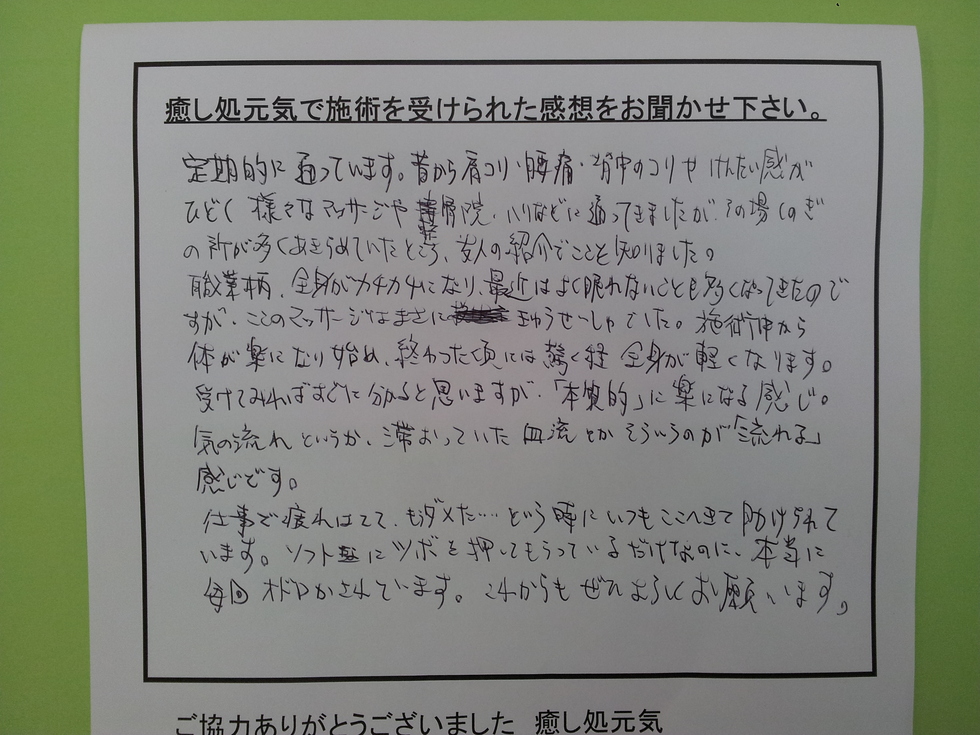 癒し処元気で施術を受けられた感想をお聞かせ下さい。
定期的に通っています。昔から肩コリ・腰痛・背中のコリや けんたい感が
ひどく 様々なマッサージや 整骨院、ハリなどに通ってきましたが、その場しのぎ
の所が多くあきらめていたところ、友人の紹介でここを知りました。
職業柄、全身がカチカチになり、最近はよく眠れないことも多くなってきたので
すが、ここのマッサージはまさに きゅうせいしゅでした。施術中から
体が楽になり始め、終わった頃には驚く程 全身が軽くなります。
受けてみればすぐに分かると思いますが、「本質的」に楽になる感じ。
気の流れというか、滞おっていた血流とかそういうのが「流れる」
感じです。
仕事で疲れはてて、もうダメだ…という時にいつもここへきて助けられて
います。ソフトにツボを押してもらっているだけなのに、本当に
毎回オドロかされています。これからもぜひよろしくお願いします。
ご協力ありがとうございました 癒し処元気